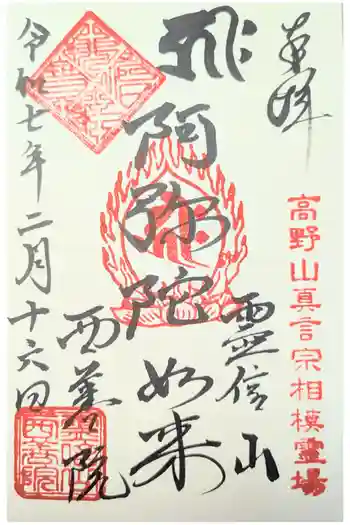 奉拝
高野山真言宗相模霊場
阿弥陀如来
霊信山
西善院
令和七年二月十六日